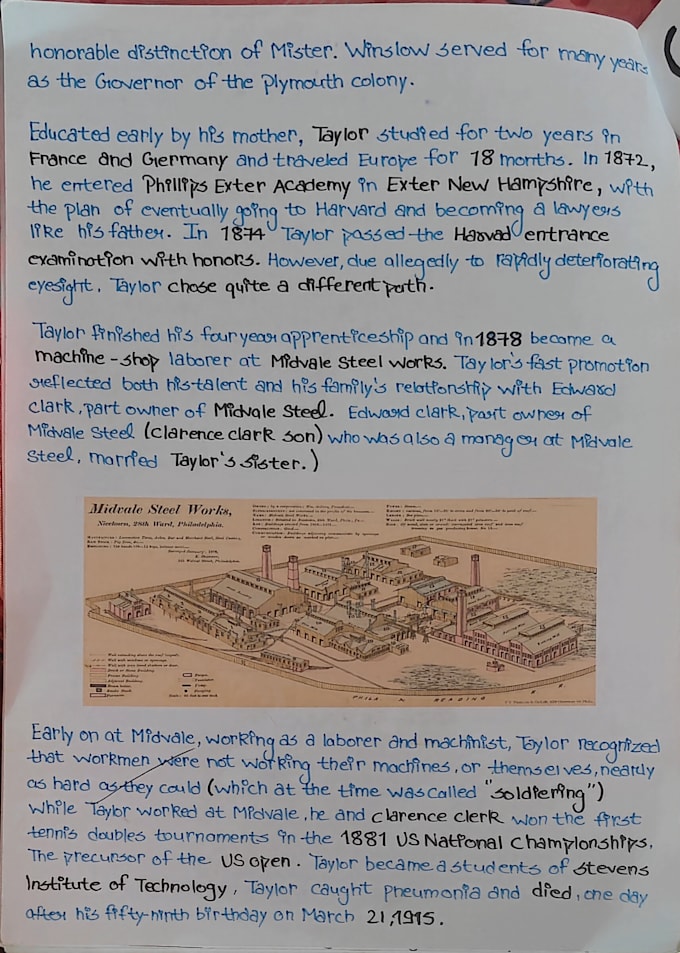 honorable distinction of Mister. Winslow served for many years
as the Governor of the Plymouth colony.
Educated early by his mother, Taylor studied for two years in
France and Germany and traveled Europe for 18 months. In 1872,
he entered Phillips Exter Academy in Exter New Hampshire, with
the plan of eventually going to Harvard and becoming a lawyers
like his father. In 1874 Taylor passed the Harvad entrance
examination with honors. However, due allegedly to rapidly deteriorating
eyesight, Taylor chose quite a different path.
Taylor finished his four year apprenticeship and in 1878 became a
machine-shop laborer at Midvale Steel Works. Taylor's fast promotion
reflected both his talent and his family's relationship with Edward
clark, part owner of Midvale Steel. Edward clark, part owner of
Midvale Steel (clarence clark son) who was also a manager at Midvale
Steel, married Taylor's sister.)
Midvale Steel Works,
Nicetown, 28th Ward, Philadelphia.
PHILA & READING R. R.
Early on at Midvale, working as a laborer and machinist, Taylor recognized
that workmen were not working their machines, or themselves, nearly
as hard as they could (which at the time was called "soldiering")
while Taylor worked at Midvale, he and clarence clerk won the first
tennis doubles tournaments in the 1881 US National Championships,
The precursor of the US open. Taylor became a students of stevens
Institute of Technology, Taylor caught pneumonia and died, one day
after his fifty-ninth birthday on March 21,1915.